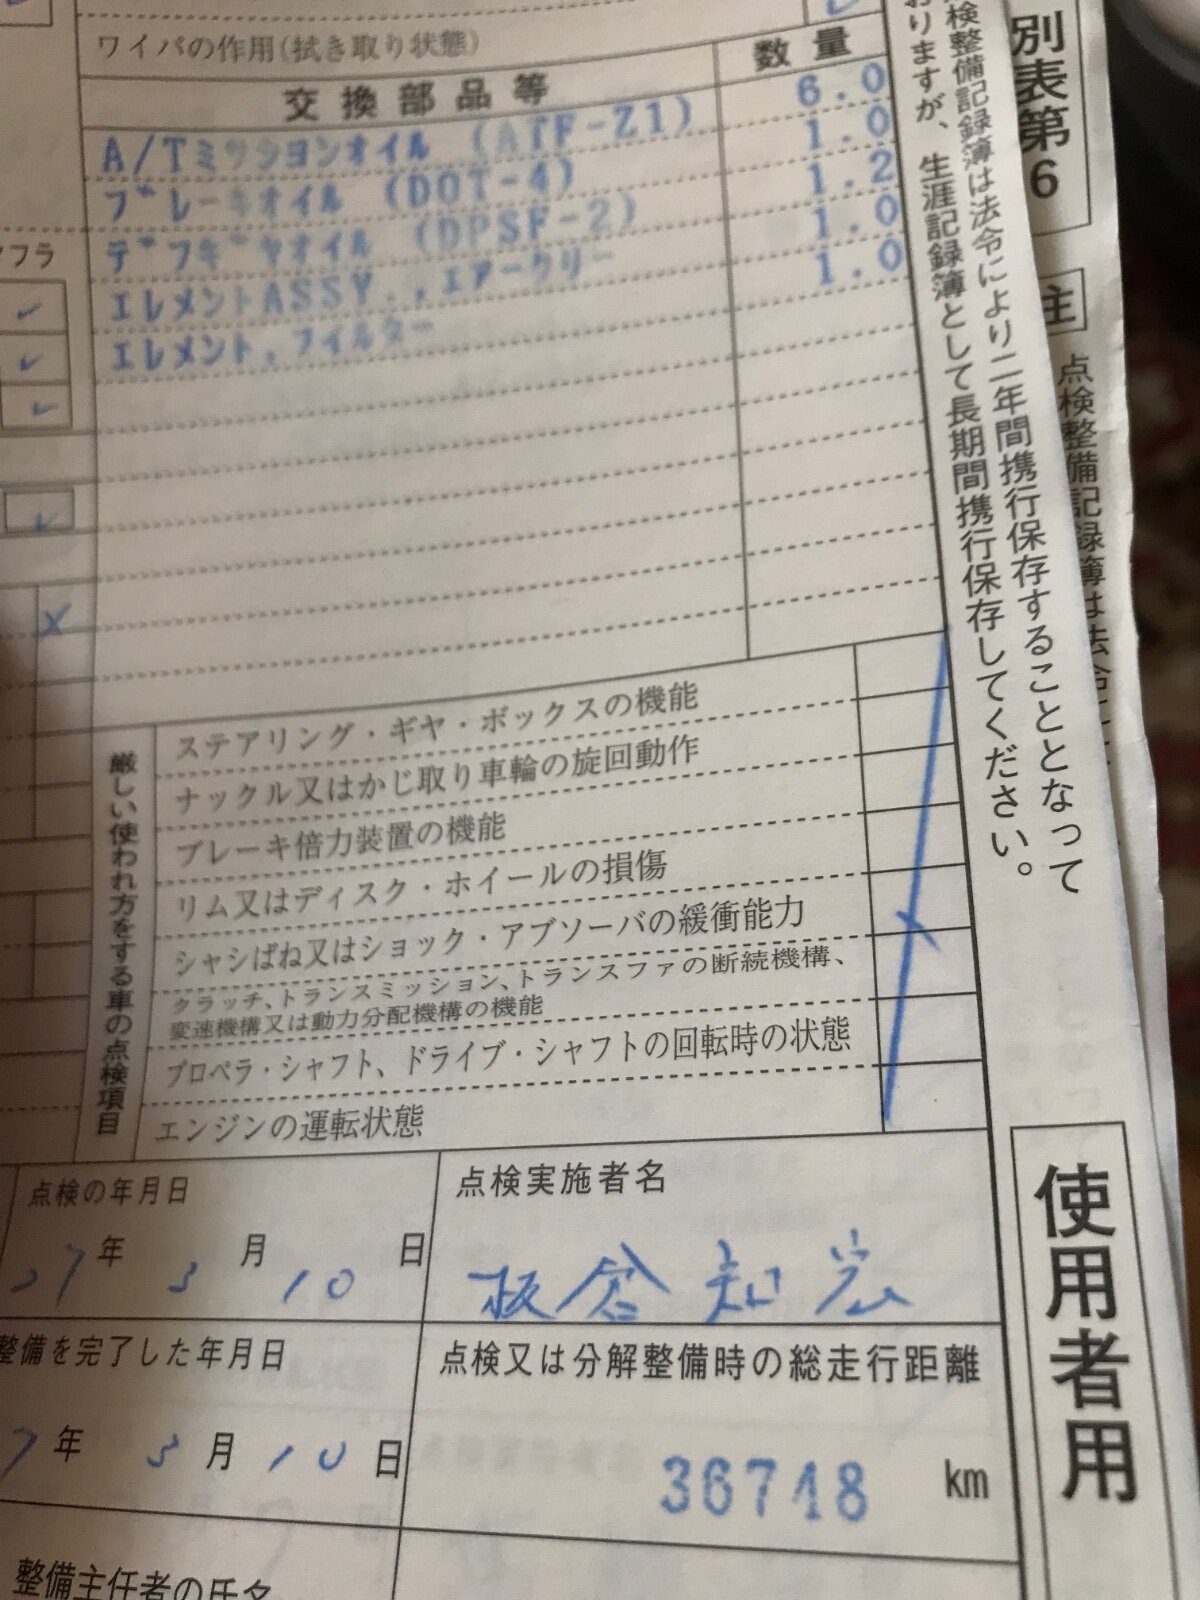 ワイパの作用(拭き取り状態)
交換部品等 数量
A/Tミッションオイル (ATF-Z1) 6.0
ブレーキオイル (DOT-4) 1.0
デフギヤオイル (DPSF-2) 1.2
エレメントASSY.,エアークリー 1.0
エレメント,フイルター 1.0
厳しい使われ方をする車の点検項目
ステアリング・ギヤ・ボックスの機能
ナックル又はかじ取り車輪の旋回動作
ブレーキ倍力装置の機能
リム又はディスク・ホイールの損傷
シャシばね又はショック・アブソーバの緩衝能力
クラッチ、トランスミッション、トランスファの断続機構、
変速機構又は動力分配機構の機能
プロペラ・シャフト、ドライブ・シャフトの回転時の状態
エンジンの運転状態
点検の年月日
27年 3月 10日
点検実施者名
板倉 知宏
整備を完了した年月日
7年 3月 10日
点検又は分解整備時の総走行距離
36748 km
整備主任者の氏名
検整備記録簿は法令により二年間携行保存することとなって
おりますが、生涯記録簿として長期間携行保存してください。
使用者用
別表第6
主
点検整備記録簿は法令に